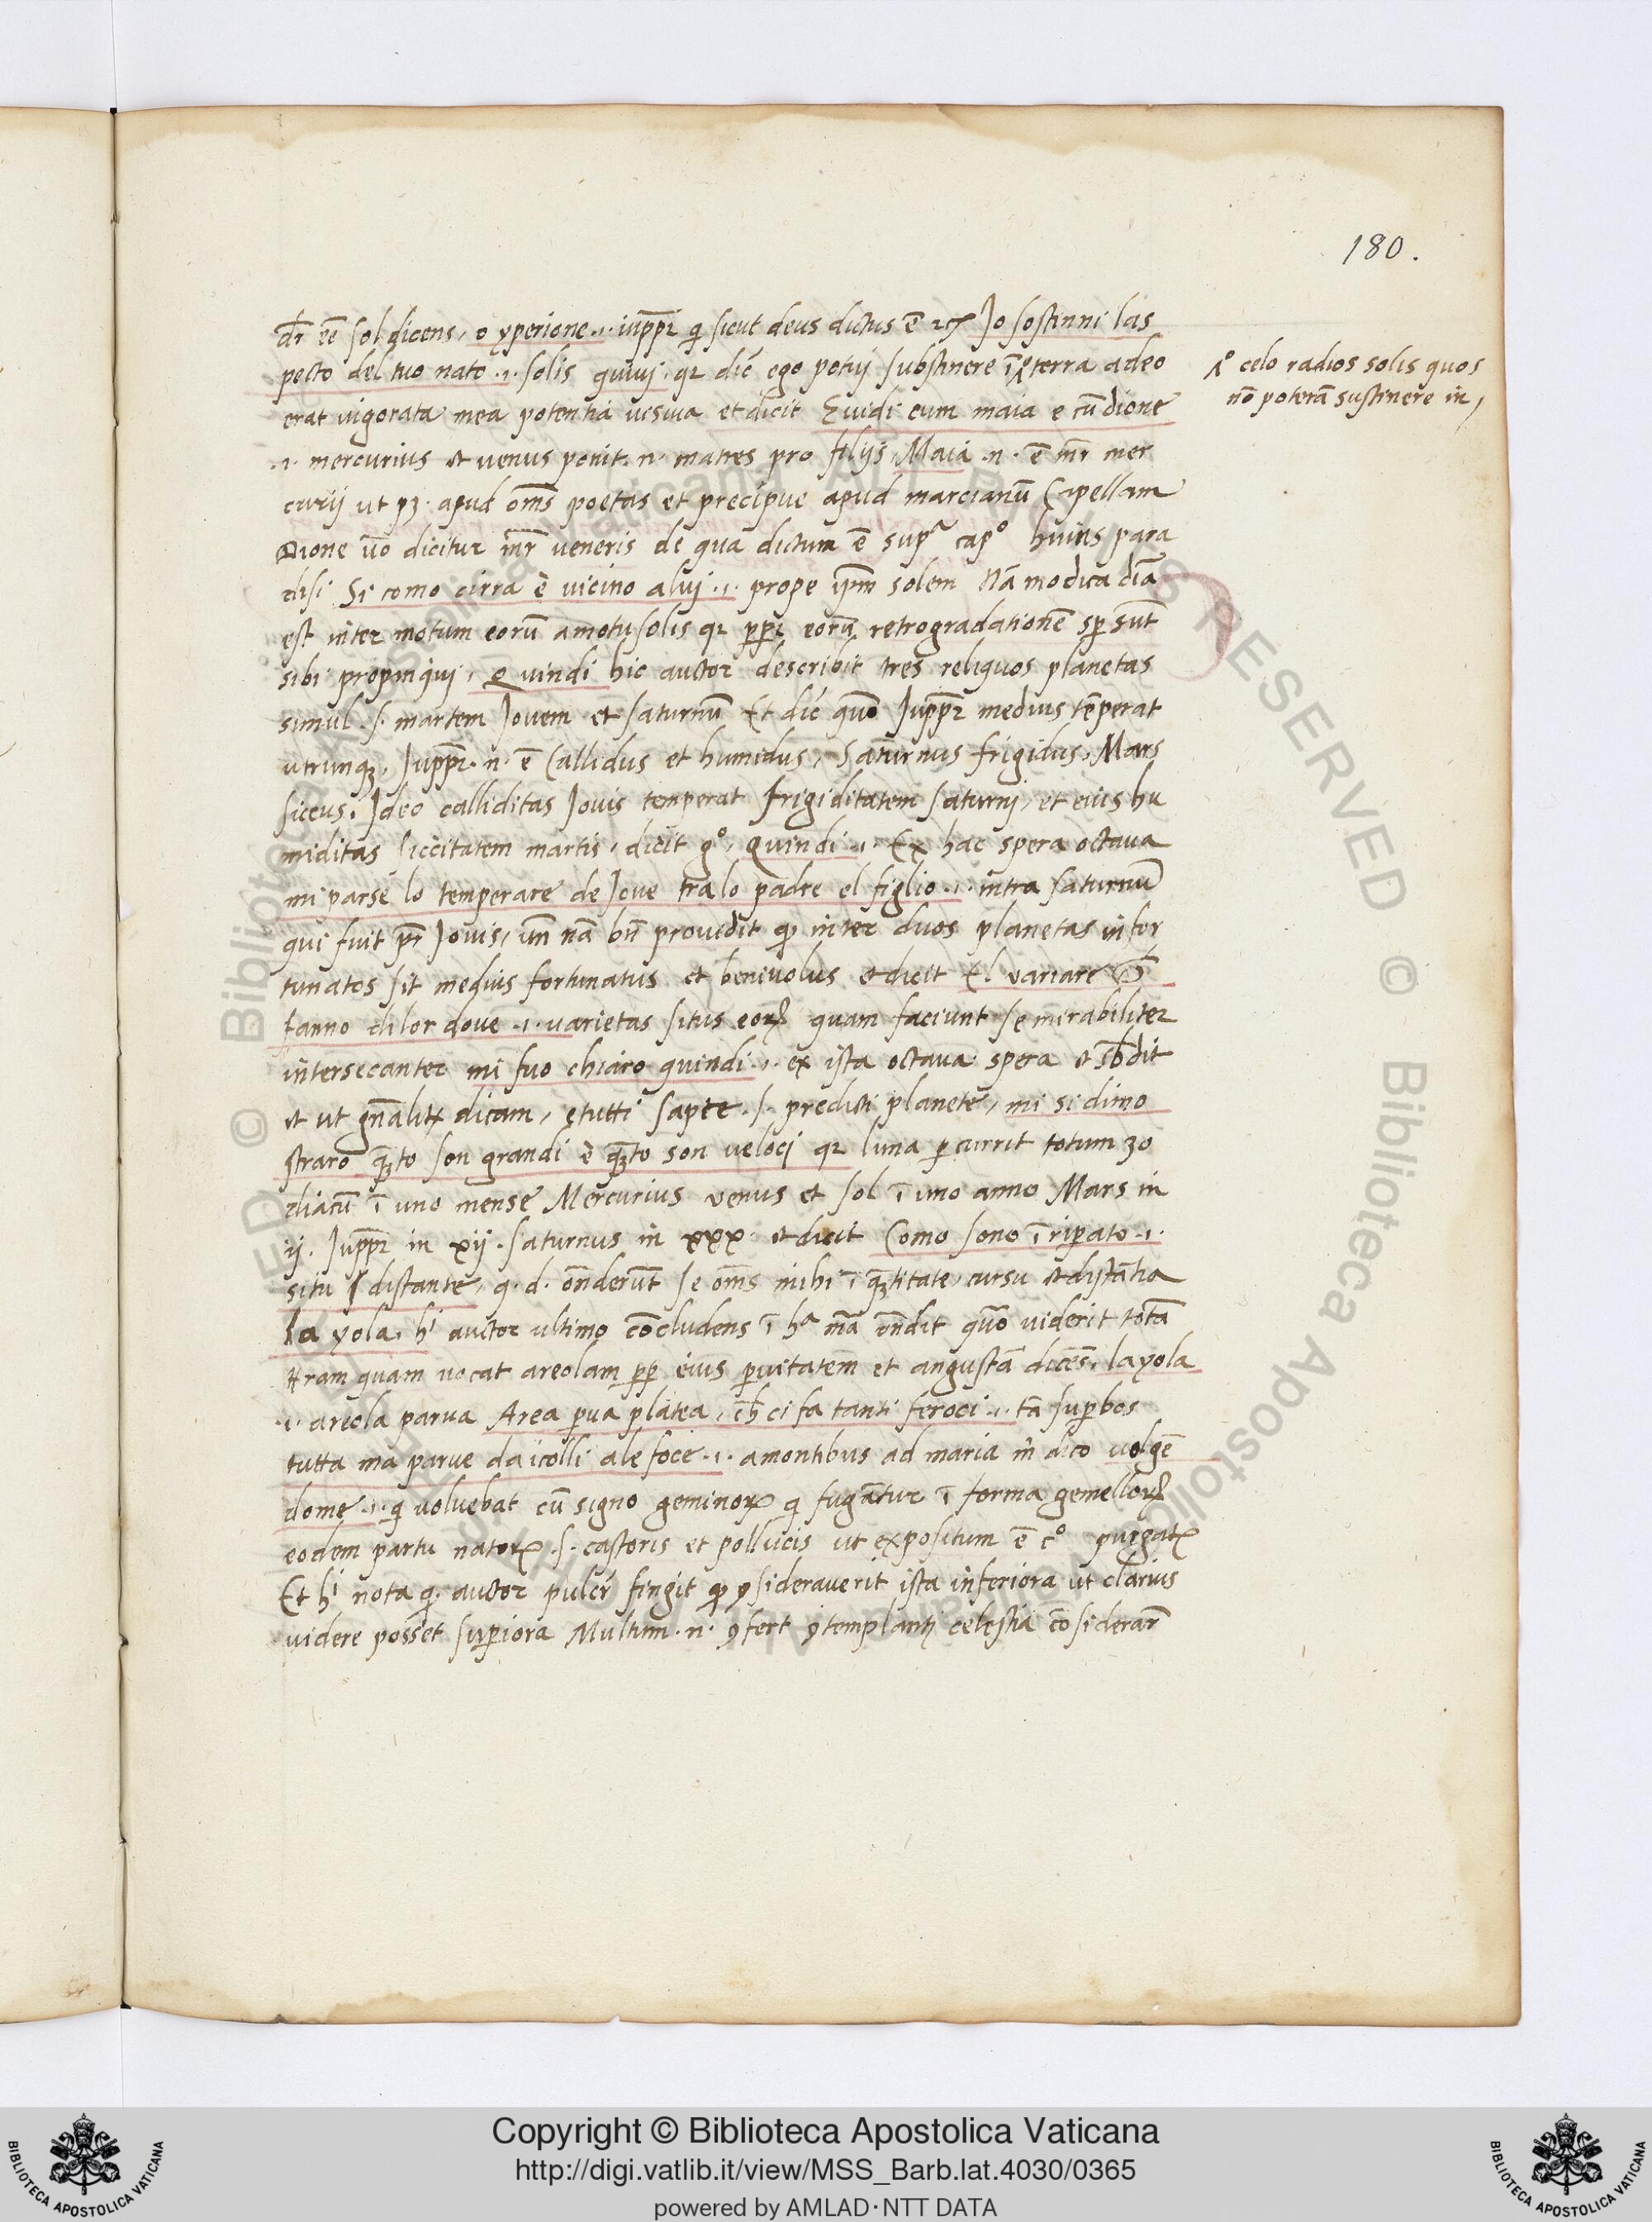 180.
dr̄ eē sol dicens, o yperione .i. iuppr̄ qi sicut deus dictus ē rex Jo sostinni las
pecto del tuo nato .i. solis quiui. qr dic̄ ego potui substinere ī terra adeo
ꝯ celo radios solis quos
nō poterā sustinere in,
erat uigorata mea potentia uisiua et dicit Euidi cum maia e cū dione
.i. mercurius et uenus ponit .n. matres pro filijs, Maia .n. ē mr̄ mer
curij ut pꝫ. apud om̄s poetas et precipue apud marcianū Capellam
Dione ūo dicitur mr̄ ueneris de qua dictum ē supª capº huius para
disi Si como cirra è uicino alui .i. prope ip̄m solem Nā modica dr̄a
est inter motum eorū a motu solis qr ppr̄ eorū retrogradationē sp̄ sūt
sibi propinqui, Quindi hic auctor describit tres reliquos planetas
simul .s. martem Jouem et saturnū Et dic̄ quō Juppr̄ medius tēperat
utrunqꝫ. Juppr̄ .n. ē Callidus et humidus, Saturnus frigidus, Mars
siccus, Ideo calliditas Jouis temperat frigiditatem saturni, et eius hu
miditas siccitatem martis, dicit gº, quindi .i. Ex hac spera octaua
mi parse lo temperare de Joue tra lo padre el figlio .i. intra saturnū
qui fuit pr̄ Jouis, un̄ nā bn̄ prouidit qꝫ inter duos planetas infor
tunatos sit medius fortunatus et beniuolus et dicit El uariare che
fanno di lor doue .i. uarietas situs eorꝝ quam faciunt se mirabiliter
intersecanter mi fuo chiaro quindi .i. ex ista octaua spera et sb̄dit
et ut gn̄alitr dicam, e tutti sapte .s. predicti planete, mi si dimo
straro qꝫto son grandi è qꝫto son ueloci qr luna pcurrit totum zo
diacū ī uno mense Mercurius uenus et sol ī uno anno Mars in
ij. Juppr̄ in xij. saturnus in xxx. et dicit Como sono ī ripato .i.
situ distante, q.d. on̄derūt se om̄s mihi ī qꝫtitate, cursu et distātia
la yola, hⁱ auctor ultimo cōcludens ī hª mā on̄dit quō uiderit totā
tr̄ram quam uocat areolam pp̄ eius pūitatem et angustā dicēs, la yola
.i. areola parua Area pua platea, ch̄ ci fa tanti feroci .i. tā supbos
tutta ma parue da icolli ale foce .i. a montibus ad maria īn dico uolgē
dome .i. qi uoluebat cū signo geminorꝝ qi fugāntur ī forma gemellorꝝ
eodem partu natorꝝ .s. castoris et pollucis ut expositum ē cº purgatꝝ
Et hⁱ nota qꝫ auctor pulcr̄ fingit qꝫ ꝯsiderauerit ista inferiora ut clarius
uidere posset supiora Multum .n. ꝯfert ꝯtemplanti celestia cōsiderar̄
Copyright © Biblioteca Apostolica Vaticana
http://digi.vatlib.it/view/MSS_Barb.lat.4030/0365
powered by AMLAD·NTT DATA
BIBLIOTECA APOSTOLICA VATICANA
BIBLIOTECA APOSTOLICA VATICANA